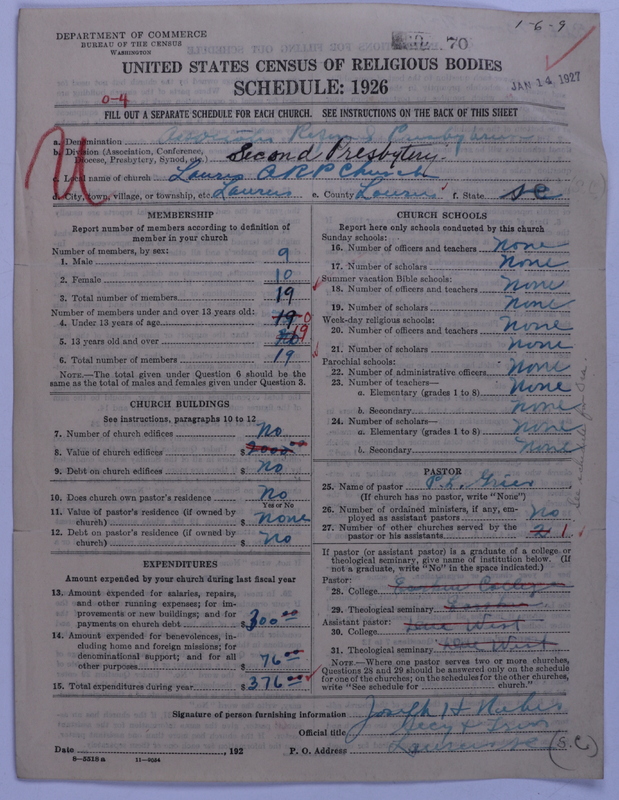 1-6-9
DEPARTMENT OF COMMERCE
BUREAU OF THE CENSUS
WASHINGTON
70
UNITED STATES CENSUS OF RELIGIOUS BODIES
SCHEDULE: 1926
JAN 14 1927
0-4
FILL OUT A SEPARATE SCHEDULE FOR EACH CHURCH. SEE INSTRUCTIONS ON THE BACK OF THIS SHEET
a. Denomination Associate Reformed Presbyterian
b. Division (Association, Conference, Diocese, Presbytery, Synod, etc.) Second Presbytery
c. Local name of church Laurens ARP Church
d. City, town, village, or township, etc. Laurens e. County Laurens f. State SC
MEMBERSHIP
Report number of members according to definition of member in your church
Number of members, by sex:
1. Male 9
2. Female 10
3. Total number of members 19
Number of members under and over 13 years old:
4. Under 13 years of age 19 0
5. 13 years old and over 19
6. Total number of members 19
NOTE.—The total given under Question 6 should be the same as the total of males and females given under Question 3.
CHURCH BUILDINGS
See instructions, paragraphs 10 to 12
7. Number of church edifices No
8. Value of church edifices $ 2000.00
9. Debt on church edifices $ No
10. Does church own pastor's residence No
Yes or No
11. Value of pastor's residence (if owned by church) $ None
12. Debt on pastor's residence (if owned by church) $ No
EXPENDITURES
Amount expended by your church during last fiscal year
13. Amount expended for salaries, repairs, and other running expenses; for improvements or new buildings; and for payments on church debt $ 300.00
14. Amount expended for benevolences, including home and foreign missions; for denominational support; and for all other purposes 76.00
15. Total expenditures during year $ 376.00
CHURCH SCHOOLS
Report here only schools conducted by this church
Sunday schools:
16. Number of officers and teachers None
17. Number of scholars None
Summer vacation Bible schools:
18. Number of officers and teachers None
19. Number of scholars None
Week-day religious schools:
20. Number of officers and teachers None
21. Number of scholars None
Parochial schools:
22. Number of administrative officers None
23. Number of teachers—
a. Elementary (grades 1 to 8) None
b. Secondary None
24. Number of scholars—
a. Elementary (grades 1 to 8) None
b. Secondary None
PASTOR
25. Name of pastor P.L. Grier
(If church has no pastor, write "None")
26. Number of ordained ministers, if any, employed as assistant pastors No
27. Number of other churches served by the pastor or his assistants 2 1
If pastor (or assistant pastor) is a graduate of a college or theological seminary, give name of institution below. (If not a graduate, write "No" in the space indicated.)
Pastor:
28. College Erskine College
29. Theological seminary Erskine
Assistant pastor:
30. College Due West
31. Theological seminary Due West
NOTE.—Where one pastor serves two or more churches, Questions 28 and 29 should be answered only on the schedule for one of the churches; on the schedules for the other churches, write "See schedule for church."
Signature of person furnishing information Joseph H.
Official title Secy & Treas
Date , 192 P. O. Address Laurens SC (S.C)
8—5518a 11—9054